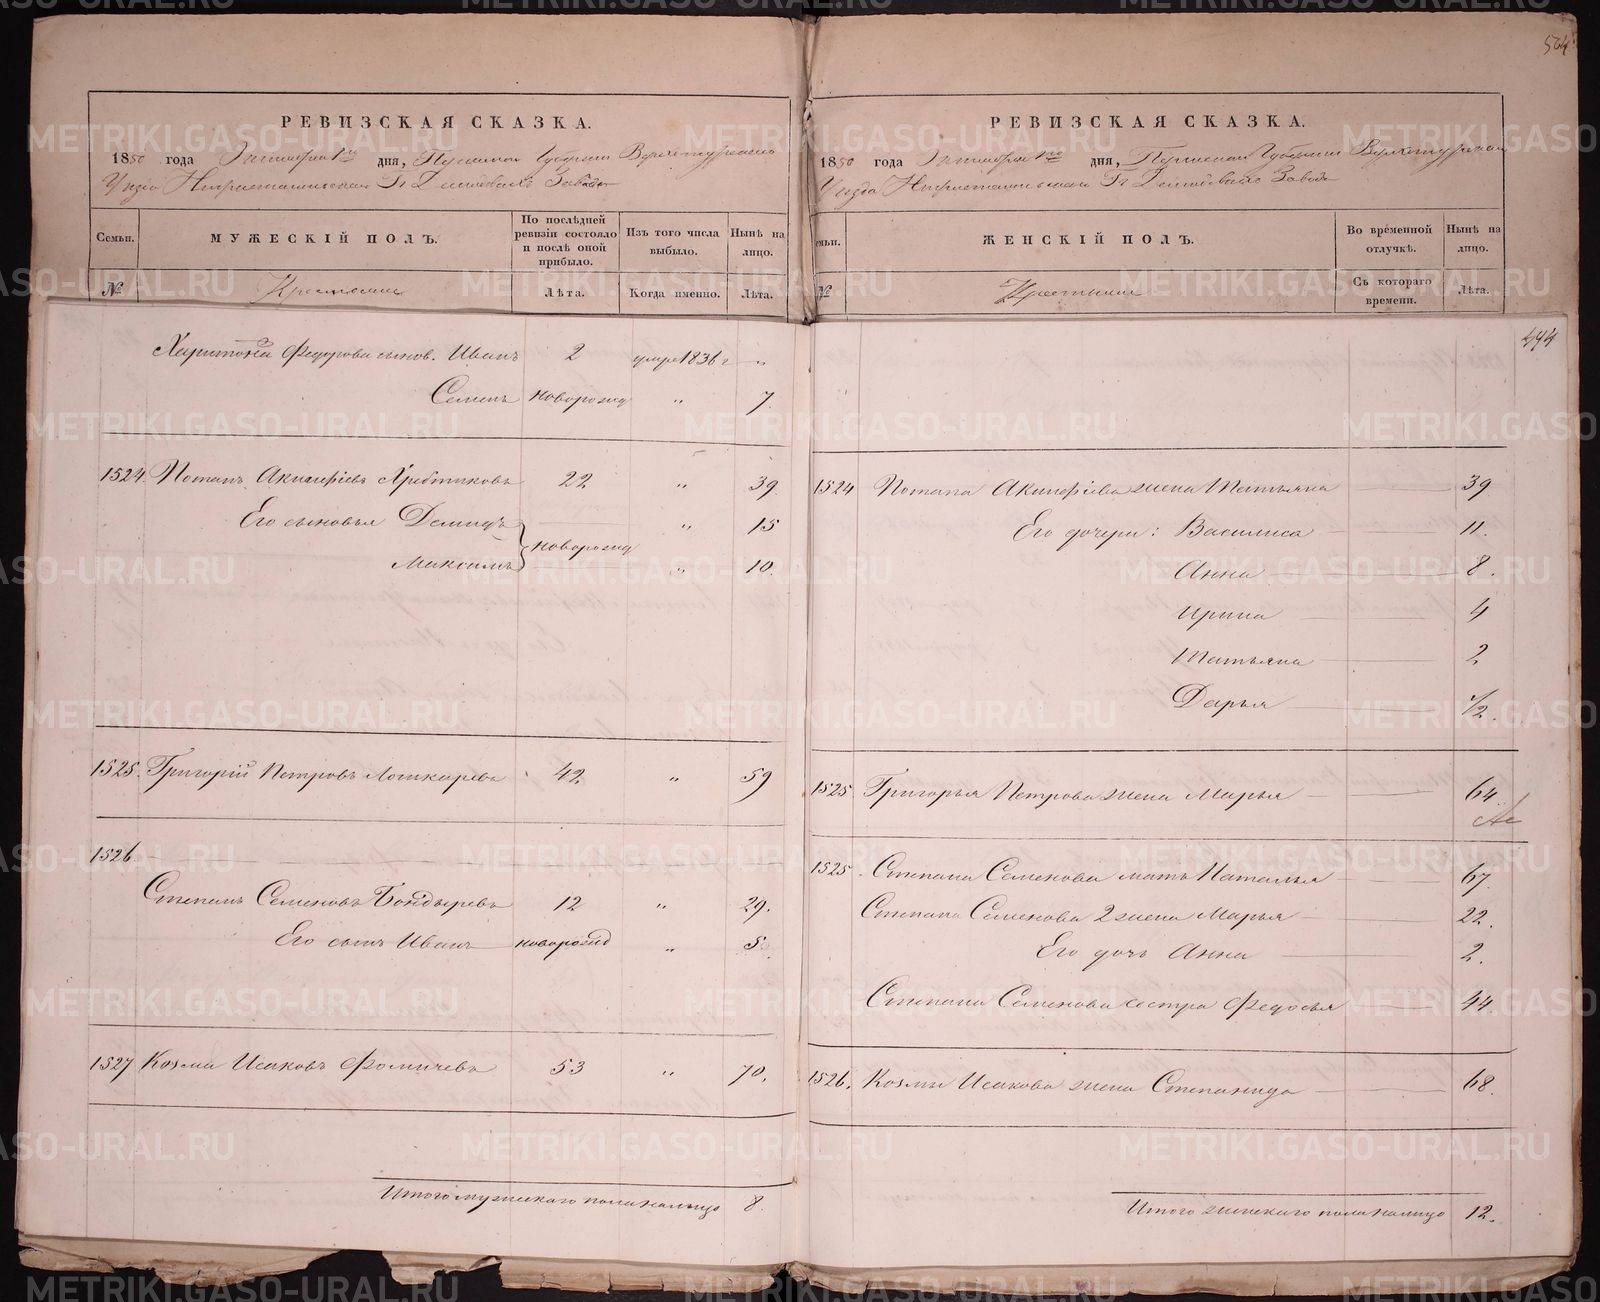 564
РЕВИЗСКАЯ СКАЗКА.
1850 года Октября 1го дня, Пермской Губернии Верхотурскаго
Уезда Нижнетагильскаго Гг. Демидовыхъ Завода
Семьи. МУЖЕСКІЙ ПОЛЪ. По послѣдней ревизіи состояло и послѣ оной прибыло. Изъ того числа выбыло. Нынѣ на лицо.
№ Крестьяне Лѣта. Когда именно. Лѣта.
Харитона Федорова сынов. Иванъ 2 умре 1836 г „
Семенъ новорожд „ 7
1524 Потапъ Акинфіевъ Хребтиковъ 22 „ 39
Его сыновья Демидъ „ 15
новорожд
Максимъ „ 10.
1525. Григорій Петровъ Лошкаревъ 42 „ 59
1526
Степанъ Семеновъ Бондыревъ 12 „ 29.
Его сынъ Иванъ новорожд „ 5.
1527 Козма Исаковъ Фомичевъ 53 „ 70.
Итого мужескаго пола налицо 8.
РЕВИЗСКАЯ СКАЗКА.
1850 года Октября 1го дня, Пермской Губернии Верхотурскаго
Уезда Нижнетагильскаго Гг. Демидовыхъ Завода
емьи. ЖЕНСКІЙ ПОЛЪ. Во врéменной отлучкѣ. Нынѣ на лицо.
№ Крестьяне Съ котораго времени. Лѣта.
494
1524 Потапа Акинфіева жена Татьяна 39
Его дочери: Василиса 11.
Анна 8.
Ирина 4
Татьяна 2
Дарья 1/2.
1525 Григорья Петрова жена Марья 64
1525. Степана Семенова мать Наталья 67.
Степана Семенова 2 жена Марья 22.
Его дочь Анна 2.
Степана Семенова сестра Федосья 44.
1526. Козмы Исакова жена Степанида 68.
Итого женскаго пола налицо 12.
METRIKI.GASO-URAL.RU